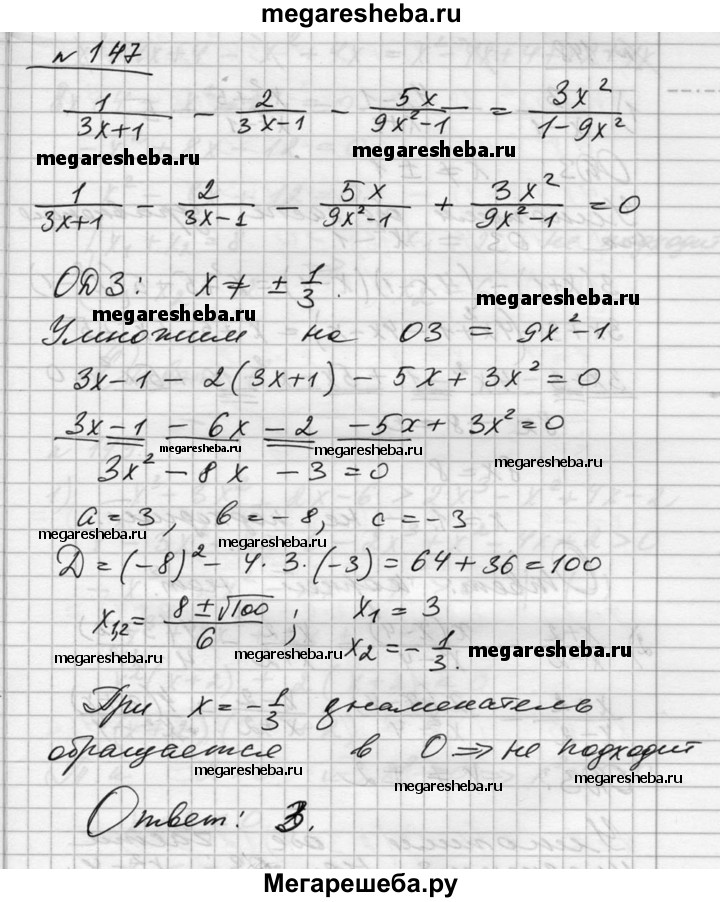 megaresheba.ru
N 147
1/(3x+1) - 2/(3x-1) - 5x/(9x²-1) = 3x²/(1-9x²)
megaresheba.ru megaresheba.ru
1/(3x+1) - 2/(3x-1) - 5x/(9x²-1) + 3x²/(9x²-1) = 0
ОДЗ: x ≠ ± 1/3.
megaresheba.ru megaresheba.ru
Умножим на ОЗ = 9x²-1
3x-1 - 2(3x+1) - 5x + 3x² = 0
3x-1 - 6x-2 -5x+ 3x²=0
megaresheba.ru megaresheba.ru
3x² - 8x - 3 = 0
a = 3, b = -8, c = -3
megaresheba.ru megaresheba.ru
D = (-8)² - 4·3·(-3) = 64+36=100
x1,2 = (8±√100)/6; x1 = 3
x2 = -1/3.
megaresheba.ru megaresheba.ru megaresheba.ru
При x = -1/3 знаменатель
обращается в 0 => не подходит
megaresheba.ru megaresheba.ru
Ответ: 3.
Мегарешеба.ру